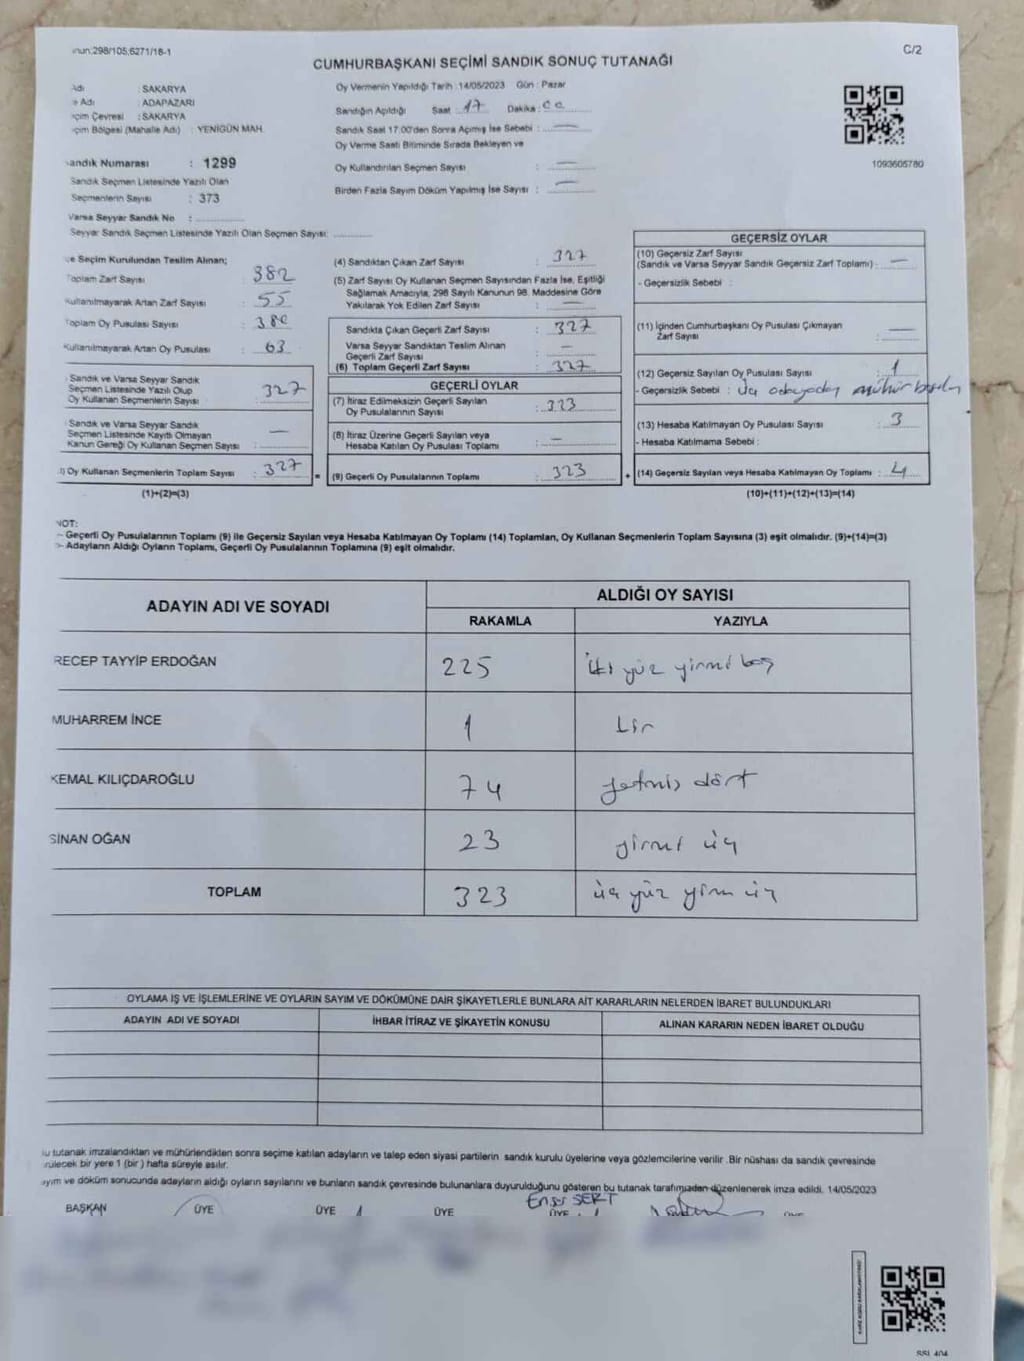 nun:298/105;6271/18-1
C/2
CUMHURBAŞKANI SEÇİMİ SANDIK SONUÇ TUTANAĞI
Adı : SAKARYA
e Adı : ADAPAZARI
çim Çevresi : SAKARYA
çim Bölgesi (Mahalle Adı) : YENİGÜN MAH.
andık Numarası : 1299
Sandık Seçmen Listesinde Yazılı Olan
Seçmenlerin Sayısı : 373
Varsa Seyyar Sandık No :
Seyyar Sandık Seçmen Listesinde Yazılı Olan Seçmen Sayısı:
Oy Vermenin Yapıldığı Tarih :14/05/2023 Gün : Pazar
Sandığın Açıldığı Saat : 17 Dakika :
Sandık Saat 17.00'den Sonra Açımış İse Sebebi : —
Oy Verme Saati Bitiminde Sırada Bekleyen ve
Oy Kullandırılan Seçmen Sayısı : —
Birden Fazla Sayım Döküm Yapılmış İse Sayısı : —
1093605780
e Seçim Kurulundan Teslim Alınan;
Toplam Zarf Sayısı : 382
Kullanılmayarak Artan Zarf Sayısı : 55
Toplam Oy Pusulası Sayısı :
Kullanılmayarak Artan Oy Pusulası : 63
Sandık ve Varsa Seyyar Sandık
Seçmen Listesinde Yazılı Olup
Oy Kullanan Seçmenlerin Sayısı : 327
Sandık ve Varsa Seyyar Sandık
Seçmen Listesinde Kayıtlı Olmayan
Kanun Gereği Oy Kullanan Seçmen Sayısı : —
) Oy Kullanan Seçmenlerin Toplam Sayısı : 327 =
(1)+(2)=(3)
(4) Sandıktan Çıkan Zarf Sayısı : 327
(5) Zarf Sayısı Oy Kullanan Seçmen Sayısından Fazla İse, Eşitliği
Sağlamak Amacıyla, 298 Sayılı Kanunun 98. Maddesine Göre
Yakılarak Yok Edilen Zarf Sayısı : —
Sandıkta Çıkan Geçerli Zarf Sayısı : 327
Varsa Seyyar Sandıktan Teslim Alınan
Geçerli Zarf Sayısı : —
(6) Toplam Geçerli Zarf Sayısı : 327
GEÇERLİ OYLAR
(7) İtiraz Edilmeksizin Geçerli Sayılan
Oy Pusulalarının Sayısı : 323
(8) İtiraz Üzerine Geçerli Sayılan veya
Hesaba Katılan Oy Pusulası Toplamı : —
(9) Geçerli Oy Pusulalarının Toplamı : 323 +
GEÇERSİZ OYLAR
(10) Geçersiz Zarf Sayısı
(Sandık ve Varsa Seyyar Sandık Geçersiz Zarf Toplamı) : —
- Geçersizlik Sebebi :
(11) İçinden Cumhurbaşkanı Oy Pusulası Çıkmayan
Zarf Sayısı : —
(12) Geçersiz Sayılan Oy Pusulası Sayısı : 1
- Geçersizlik Sebebi : Üç adayada mühür
(13) Hesaba Katılmayan Oy Pusulası Sayısı : 3
- Hesaba Katılmama Sebebi :
(14) Geçersiz Sayılan veya Hesaba Katılmayan Oy Toplamı : 4
(10)+(11)+(12)+(13)=(14)
NOT:
- Geçerli Oy Pusulalarının Toplamı (9) ile Geçersiz Sayılan veya Hesaba Katılmayan Oy Toplamı (14) Toplamları, Oy Kullanan Seçmenlerin Toplam Sayısına (3) eşit olmalıdır. (9)+(14)=(3)
- Adayların Aldığı Oyların Toplamı, Geçerli Oy Pusulalarının Toplamına (9) eşit olmalıdır.
ADAYIN ADI VE SOYADI
ALDIĞI OY SAYISI
RAKAMLA YAZIYLA
RECEP TAYYİP ERDOĞAN 225 iki yüz yirmi beş
MUHARREM İNCE 1 bir
KEMAL KILIÇDAROĞLU 74 yetmiş dört
SİNAN OĞAN 23 yirmi üç
TOPLAM 323 üç yüz yirmi üç
OYLAMA İŞ VE İŞLEMLERİNE VE OYLARIN SAYIM VE DÖKÜMÜNE DAİR ŞİKAYETLERLE BUNLARA AİT KARARLARIN NELERDEN İBARET BULUNDUKLARI
ADAYIN ADI VE SOYADI İHBAR İTİRAZ VE ŞİKAYETİN KONUSU ALINAN KARARIN NEDEN İBARET OLDUĞU
u tutanak imzalandıktan ve mühürlendikten sonra seçime katılan adayların ve talep eden siyasi partilerin sandık kurulu üyelerine veya gözlemcilerine verilir .Bir nüshası da sandık çevresinde
rülecek bir yere 1 (bir ) hafta süreyle asılır.
ayım ve döküm sonucunda adayların aldığı oyların sayılarını ve bunların sandık çevresinde bulunanlara duyurulduğunu gösteren bu tutanak tarafımızdan düzenlenerek imza edildi. 14/05/2023
BAŞKAN ÜYE ÜYE ÜYE Enes SERT ÜYE ÜYE